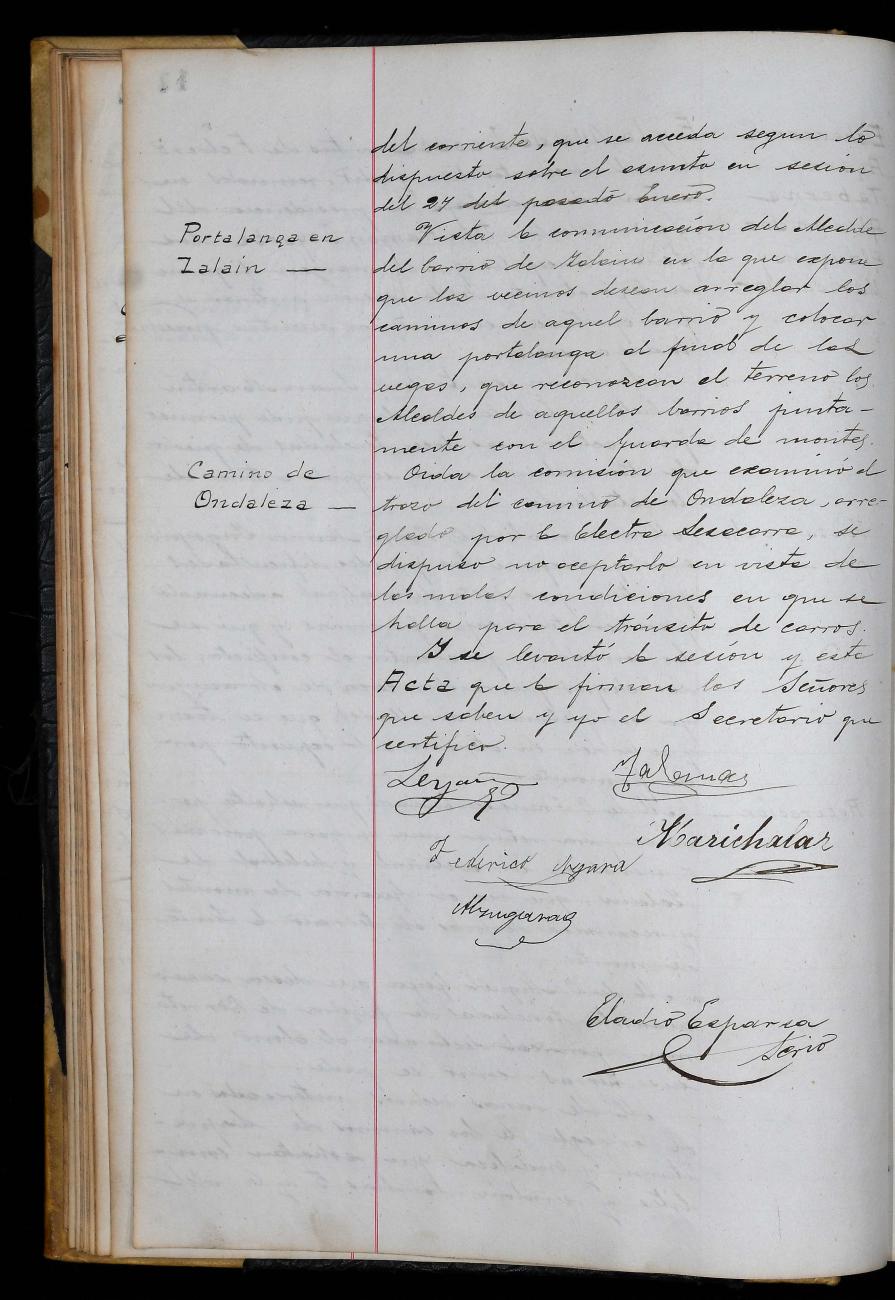 del corriente, que se acceda segun lo
dispuesto sobre el asunto en sesión
del 27 del pasado Enero.
Portalanga en
Zalain —
Vista la comunicación del Alcalde
del barrio de Zalain en la que expone
que los vecinos desean arreglar los
caminos de aquel barrio y colocar
una portalanga al final de las
vegas, que reconozcan el terreno los
Alcaldes de aquellos barrios junta-
mente con el guarda de montes.
Camino de
Ondaleza —
Oida la comisión que examinó el
trozo del camino de Ondaleza, arre-
glado por la Electra Sesacarra, se
dispuso no aceptarlo en vista de
las malas condiciones en que se
halla para el tránsito de carros.
Y se levantó la sesión y esta
Acta que la firman los Señores
que saben y yo el Secretario que
certifico.
Marichalar
Federico
Eladio Esparza
Serio